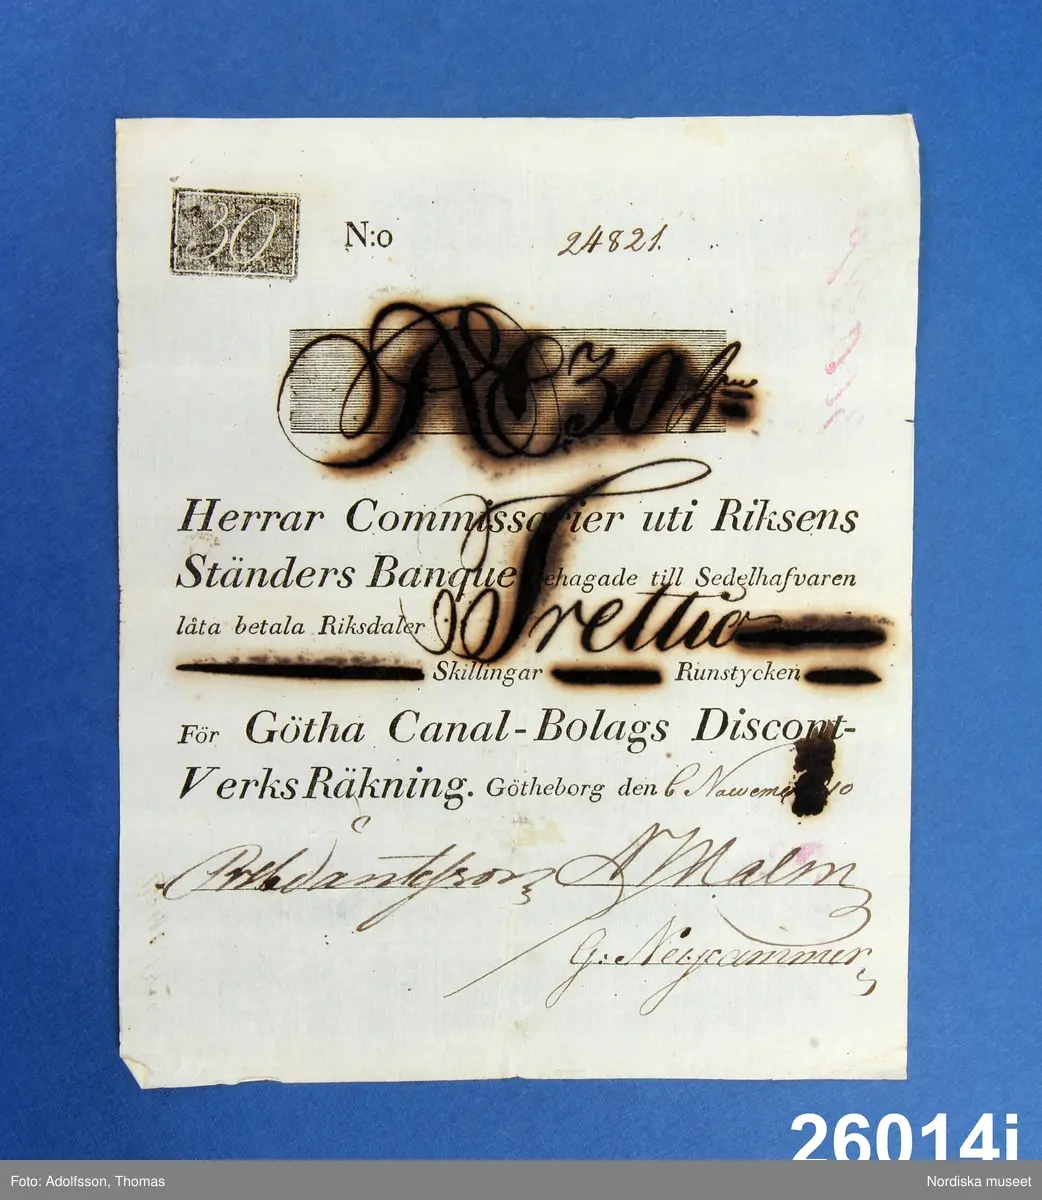 30 N:o 24821.
RD 30
Herrar Commissarier uti Riksens
Ständers Banque behagade till Sedelhafvaren
låta betala Riksdaler Trettio
Skillingar Runstycken
För Götha Canal-Bolags Discont-
Verks Räkning. Götheborg den 6 10
A Malm
G: Neijcammer
26014i
Foto: Adolfsson, Thomas Nordiska museet